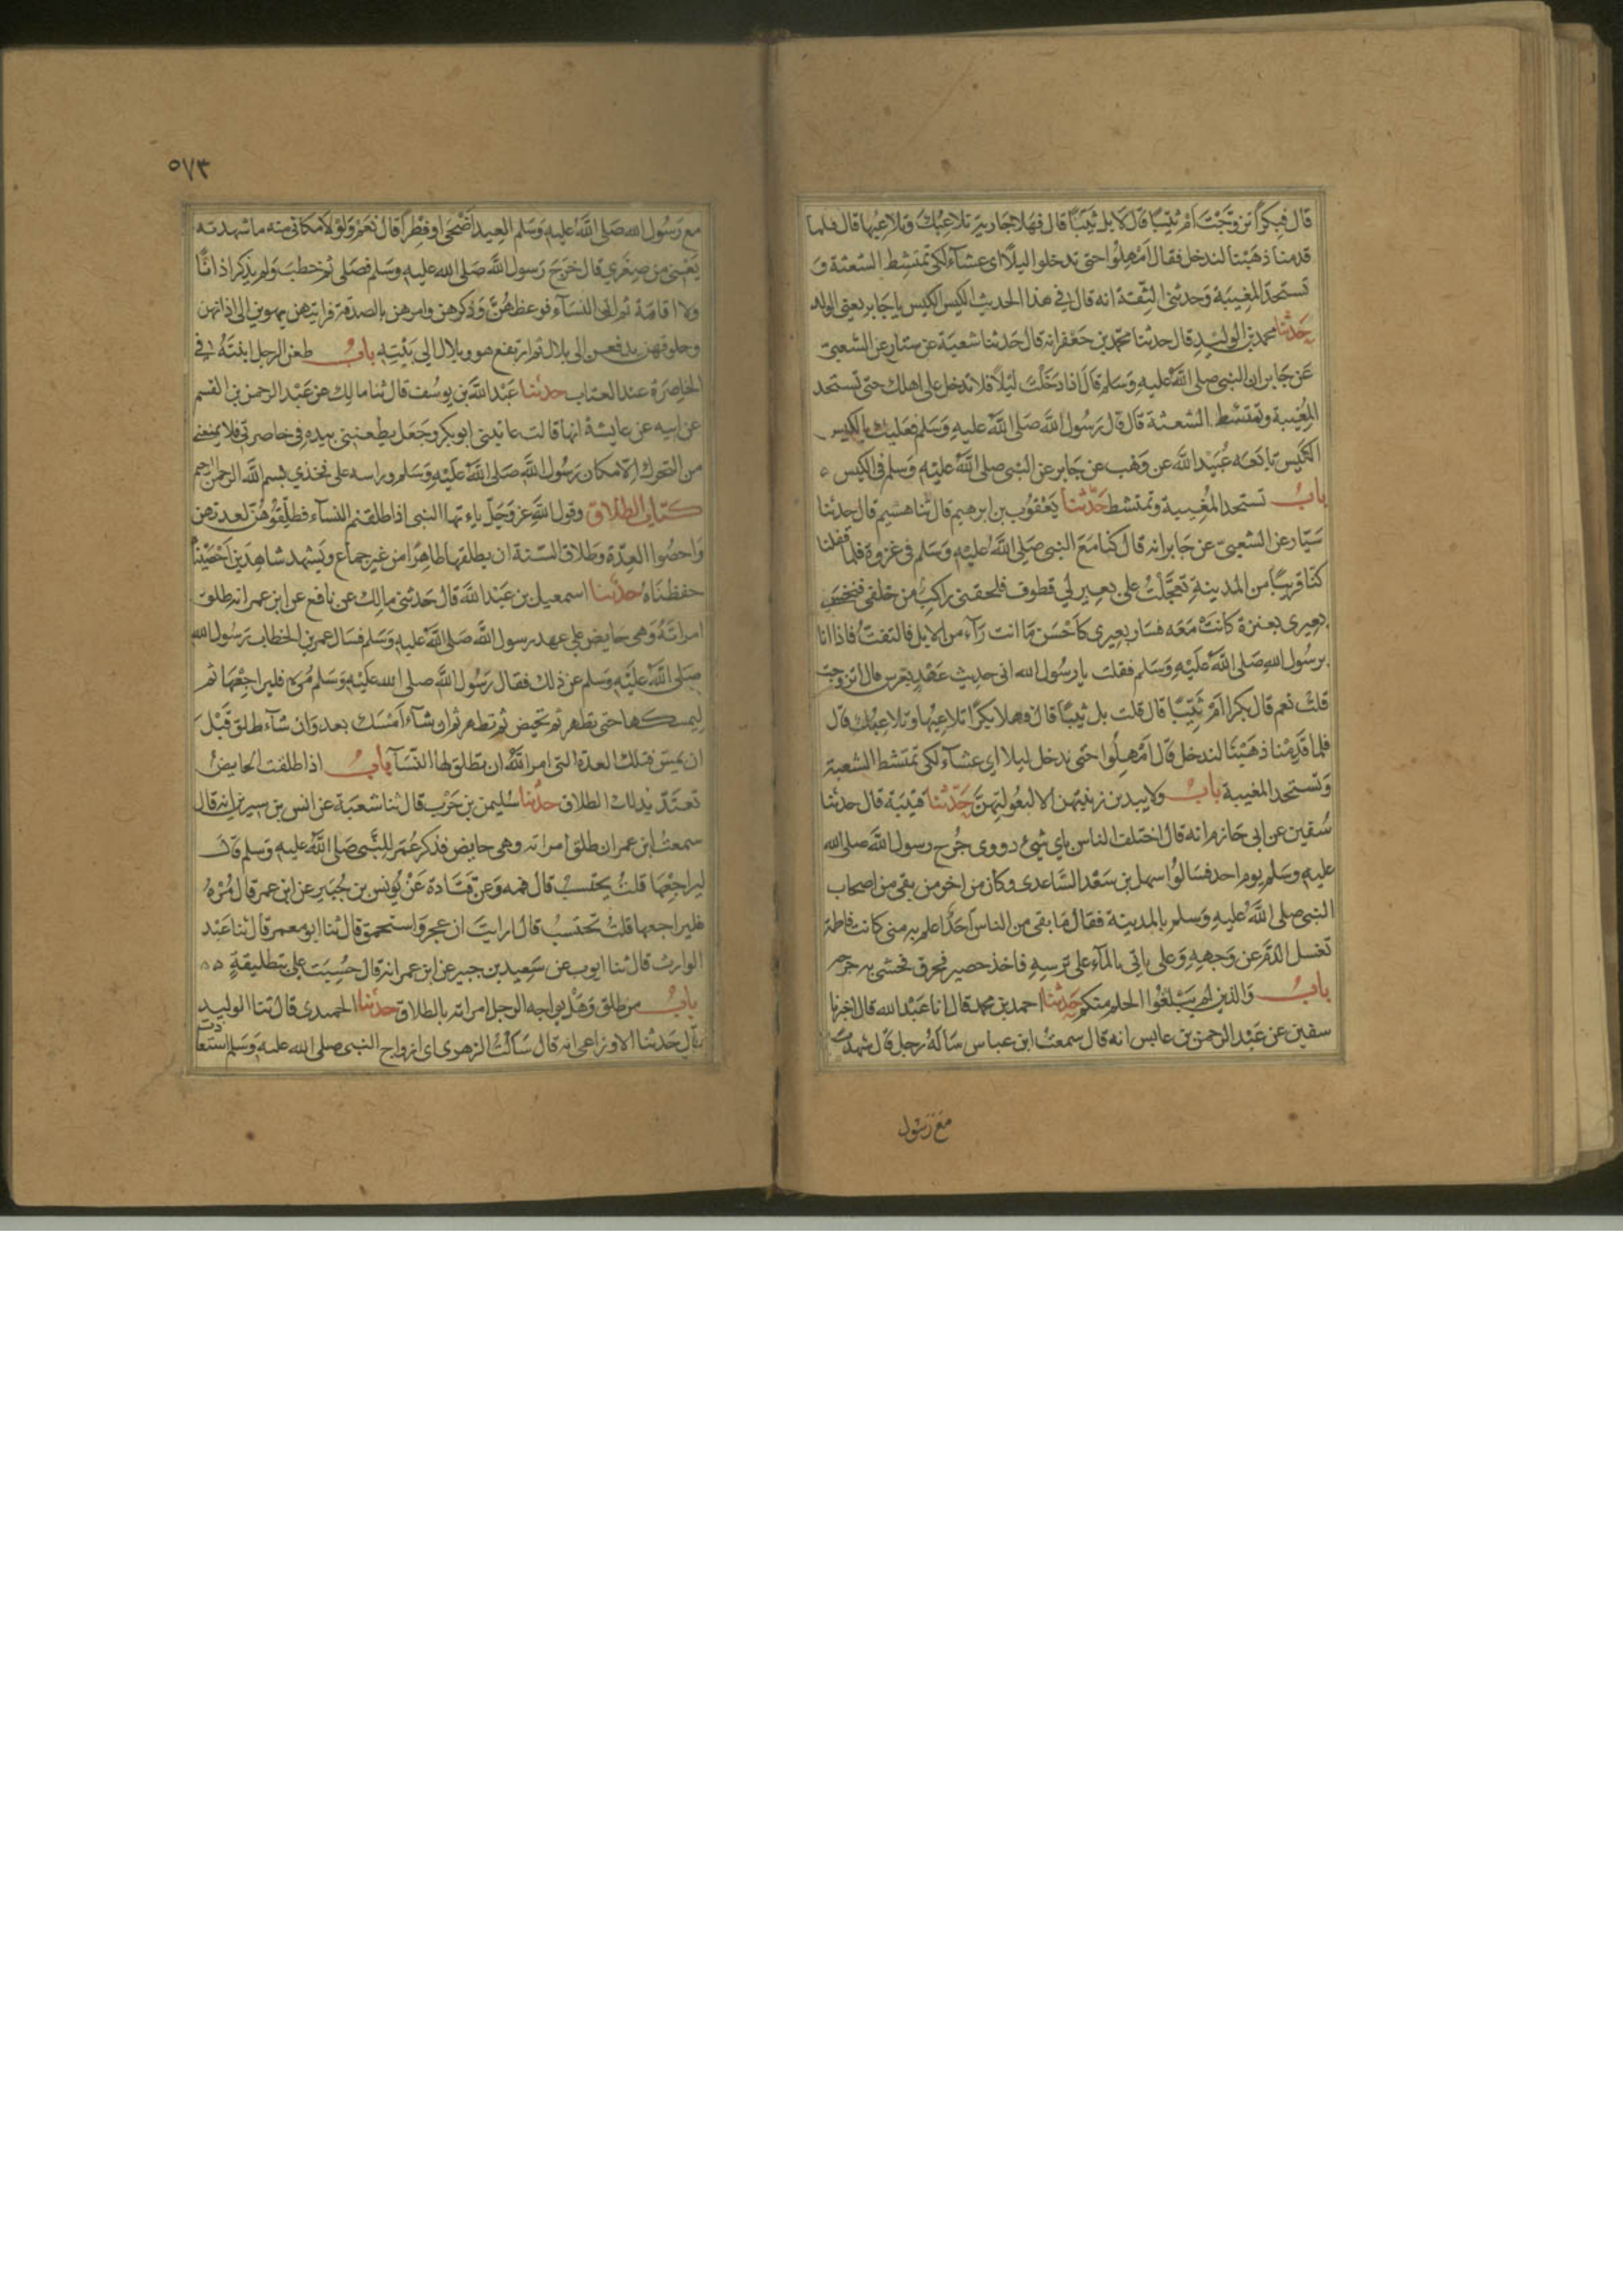 قال فبكرًا تزوّجْتَ اَمْ ثَيّبًا قال لا بل ثَيّبًا قال فهلا جارية تلاعبُك وتلاعبُها قال فلما
قدمنا ذهَبْنا لندخل فقال اَمْهِلُوا حتى تدخلوا ليلًا اى عشاء لكى تمتشط الشعثة وَ
تستحدّ المغِيبَة وَحدثنى الثِّقة انه قال فى هذا الحديث الكيس الكيس يا جَابر يعنى الولد
حَدثنا محمد بن الوليد قال حدثنا محمّد بن جَعْفر انه قال حَدثنا شعبَة عن سيار عن الشعبىّ
عَن جَابر ان النبى صلى اللّٰه عليه وَسَلم قَالَ اذا دَخَلْتَ لَيْلًا فلا تدخل على اهلك حتى تستحد
المُغِيبَة وتمتشط الشعثة قال قال رَسُولُ اللّٰه صَلى اللّٰه عليه وَسَلم فعَليك بالكيس
الكَيْس تابَعَه عُبَيْد اللّٰه عن وَهْب عن جَابر عن النبى صلى اللّٰه عليه وَسلم فى الكيس
بابٌ تستحد المُغِيبة وتمتشط حَدّثنا يَعْقُوب بن ابرهيم قال ثنا هشيم قال حدثنا
سَيّار عن الشعبىّ عن جَابر انه قال كنا مَعَ النبى صَلى اللّٰه عليه وَسَلم فى غزوة فلما قفلنا
كنّا قريبًا من المدينة تعجَّلْتُ على بعيرٍ لى قطوف فلحقنى راكبٌ من خلفى فنخس
بعيرى بعنزة كانتْ مَعَه فسَار بعيرى كاَحْسَن مَا انت رَآءٍ من الابل فالتفتُّ فاذا انا
برسُول اللهِ صَلى اللّٰه علَيْهِ وَسَلم فقلت يا رسُول الله انى حديث عَهْدٍ بعرس قال اتزوجت
قلتُ نعم قال بكرا اَمْ ثَيِّبًا قال قلت بل ثيبًا قال فهلا بكرًا تلاعبُها وتلاعبُك قال
فلما قدِمْنا ذهَبْنا لندخل قال اَمْهِلُوا حتى ندخل ليلا اى عشاءً لكى تمتشط الشعثة
وَتستحد المغيبة بابٌ ولا يبدين زينتهن الا لبعُولتِهنَّ حَدّثنا قتيبَة قال حدثنا
سُفين عن ابى حَازم انه قال اختلف الناس باى شىءٍ دووى جُرح رسول اللّٰه صلى الله
عليه وسَلم يوم احد فسَالوُا سهل بن سَعْد السَّاعدى وكان من اخر من بقى من اصحاب
النبى صلى اللّٰه عليه وَسلم بالمدينة فقال مَا بقى من الناس اَحَدٌ اعلم به منى كانت فاطمة
تغسل الدَّمَ عن وَجههِ وَعلى ياتى بالمآء على ترسهِ فاخذ حصير فحرق فحشى به جرحه
بابٌ وَالذين لم يَبْلغُوا الحلم منكم حَدثنا احمد بن محمد قال انا عَبْد الله قال اخبرنا
سفين عن عَبْد الرحمن بن عابس انه قال سمعتُ ابن عباس سَالَهُ رجل قال شهدتَ
مَعَ رَسُول
٥٧٣
مع رَسُول الله صَلى اللّٰه عليه وَسَلم العِيد اَضْحَى او فِطْراً قال نَعَمْ وَلَوْ لا مكانى منه ما شهدته
يَعْنى من صِغَرِى قال خَرَجَ رَسول اللّٰه صَلى الله عليه وسَلم فصَلى ثم خطبَ وَلم يذكر اذانًا
ولا اقامَة ثم اتى النسَآء فوعظهُنَّ وَذكرهن وامرهن بالصدقة فرايتهن يهوين الى اذانهن
وحلوقهن يدفعن الى بلال ثم ارتفع هو وبلال الى بَيْتِهِ بابٌ طعن الرجل ابنتَهُ فى
الخاصِرَة عند العتاب حدثنا عَبْد اللّٰه بن يوسُف قال ثنا مالك عن عَبْد الرحمن بن القسم
عن ابيه عن عايشة انها قالت عاتبنى ابو بكر وجَعَل يطعننى بيده فى خاصرتى فلا يمنعنى
من التحرك الّا مكان رَسُول اللّٰه صَلى اللّٰه علَيْهِ وَسَلم وراسه على فخذى بسم اللّٰه الرحمن الرحيم
كتاب الطلاق وقول اللّٰه عز وَجَلّ ياءيها النبى اذا طلقتم النسآء فطلِّقُوْهُنَّ لعدتهن
وَاحصُوا العِدّة وَطلاق السّنة ان يطلقها طاهِرًا من غير جماع ويَشْهد شاهِدَين اَحْصَيْناه
حفظنَاهُ حدثنا اسمعيل بن عَبْد اللّٰه قال حَدثنى مالِك عن نافع عن ابن عمر انه طلق
امراتَهُ وَهى حايض على عهد رسول اللّٰه صَلى اللّٰه عليه وَسَلم فسَال عمر بن الخطاب رَسُول الله
صَلى اللّٰه علَيْه وسَلم عن ذلك فقال رَسُول اللّٰه صلى الله عليْه وَسَلم مُره فليراجعْهَا ثم
لِيمسكها حتى تطهر ثم تحيض ثم تطهر ثم ان شآء اَمْسَك بعد وَان شآء طلق قَبْلَ
ان يمسّ فتلك العدة التى امر اللّٰه ان تطلق لها النّسَآء بابٌ اذا طلقت الحايضُ
تعتَدّ بذلك الطلاق حدثنا سُليمن بن حَرْب قال ثنا شعبَة عن انس بن سيرين انه قال
سمعتُ ابن عمر ان طلق امراته وهى حايض فذكر عُمَر للنَّبى صَلى اللّٰه عليه وَسلم قال
ليراجعْهَا قلتُ يحتسبُ قال فمه وَعن قَتَادة عَنْ يُونس بن جُبَير عن ابن عمر قال مُرْهُ
فليراجعها قلتُ تحتسَبُ قال ارايتَ ان عجز وَاستحمق قال ثنا ابو معمر قال ثنا عَبْد
الوارث قال ثنا ايوب عن سَعِيد بن جبير عن ابن عمر انه قال حُسِبَت على بتطليقةٍ
بابٌ من طلق وَهَلْ يواجه الرجل امراته بالطلاق حدثنا الحميدى قال ثنا الوليد
قال حَدثنا الاوزاعى انه قال سَاَلتُ الزهرى اى ازواج النبى صلى الله عليه وَسَلم استعاذت